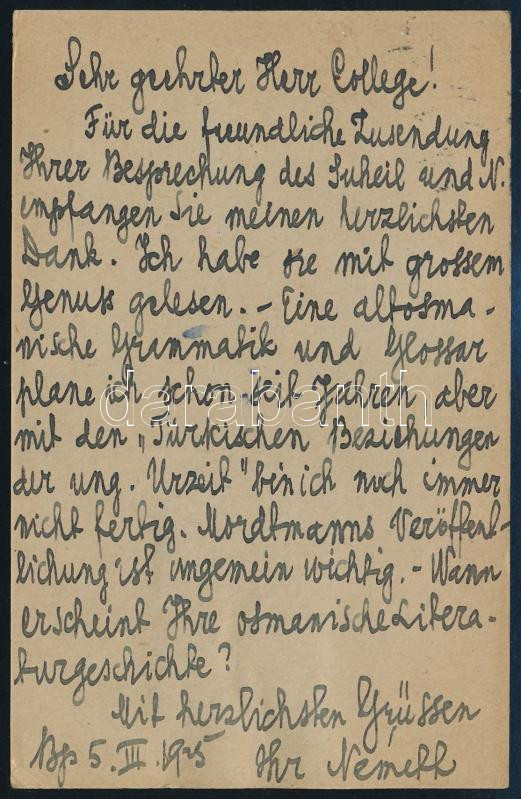 Sehr geehrter Herr College!
Für die freundliche Zusendung
Ihrer Besprechung des Suheil und N.
empfangen Sie meinen herzlichsten
Dank. Ich habe sie mit grossem
Genuss gelesen. – Eine altosma-
nische Grammatik und Glossar
plane ich schon seit Jahren aber
darabanth
mit den „Türkischen Beziehungen
der ung. Urzeit" bin ich noch immer
nicht fertig. Mordtmanns Veröffent-
lichung ist ungemein wichtig. – Wann
erscheint Ihre osmanische Litera-
turgeschichte?
Mit herzlichsten Grüssen
Bp 5. III. 1925 Ihr Németh